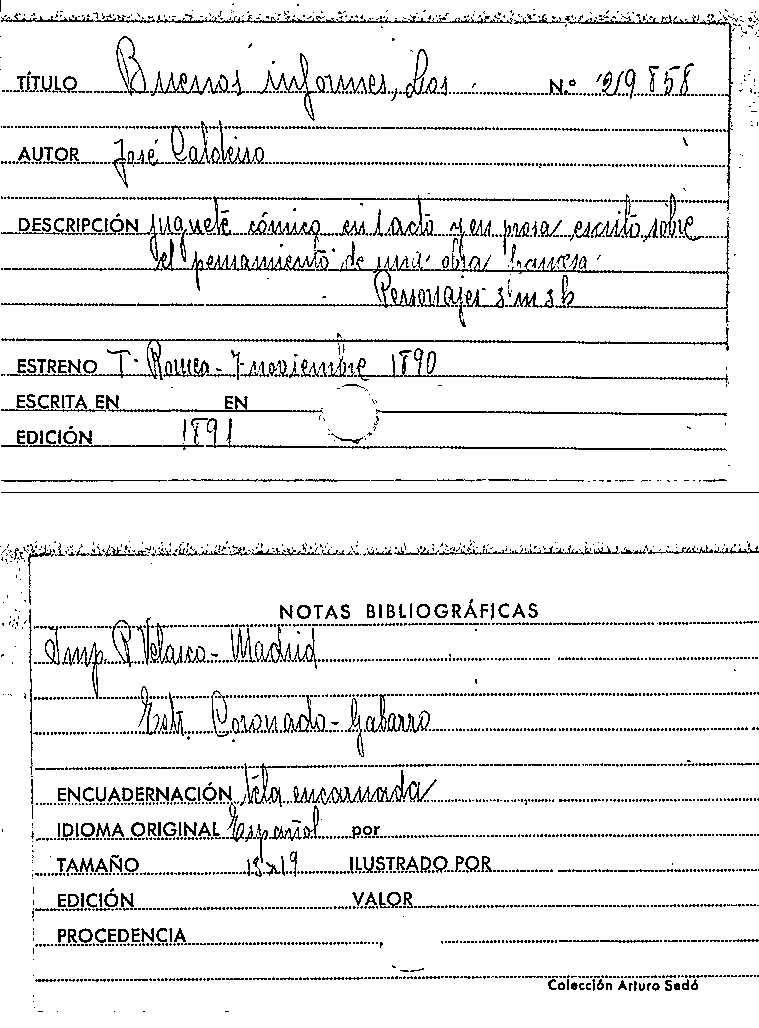 TÍTULO Buenos informes, Los N.º 219858
AUTOR José Caldeiro
DESCRIPCIÓN juguete cómico en 1 acto y en prosa escrito sobre
el pensamiento de una obra francesa
Personajes 3 m 3 h
ESTRENO T. Romea - 7 noviembre 1890
ESCRITA EN EN
EDICIÓN 1891
NOTAS BIBLIOGRÁFICAS
Imp. P Velasco - Madrid
Estr. Coronado - Gabarro
ENCUADERNACIÓN tela encarnada
IDIOMA ORIGINAL Español por
TAMAÑO 13x19 ILUSTRADO POR
EDICIÓN VALOR
PROCEDENCIA
Colección Arturo Sedó